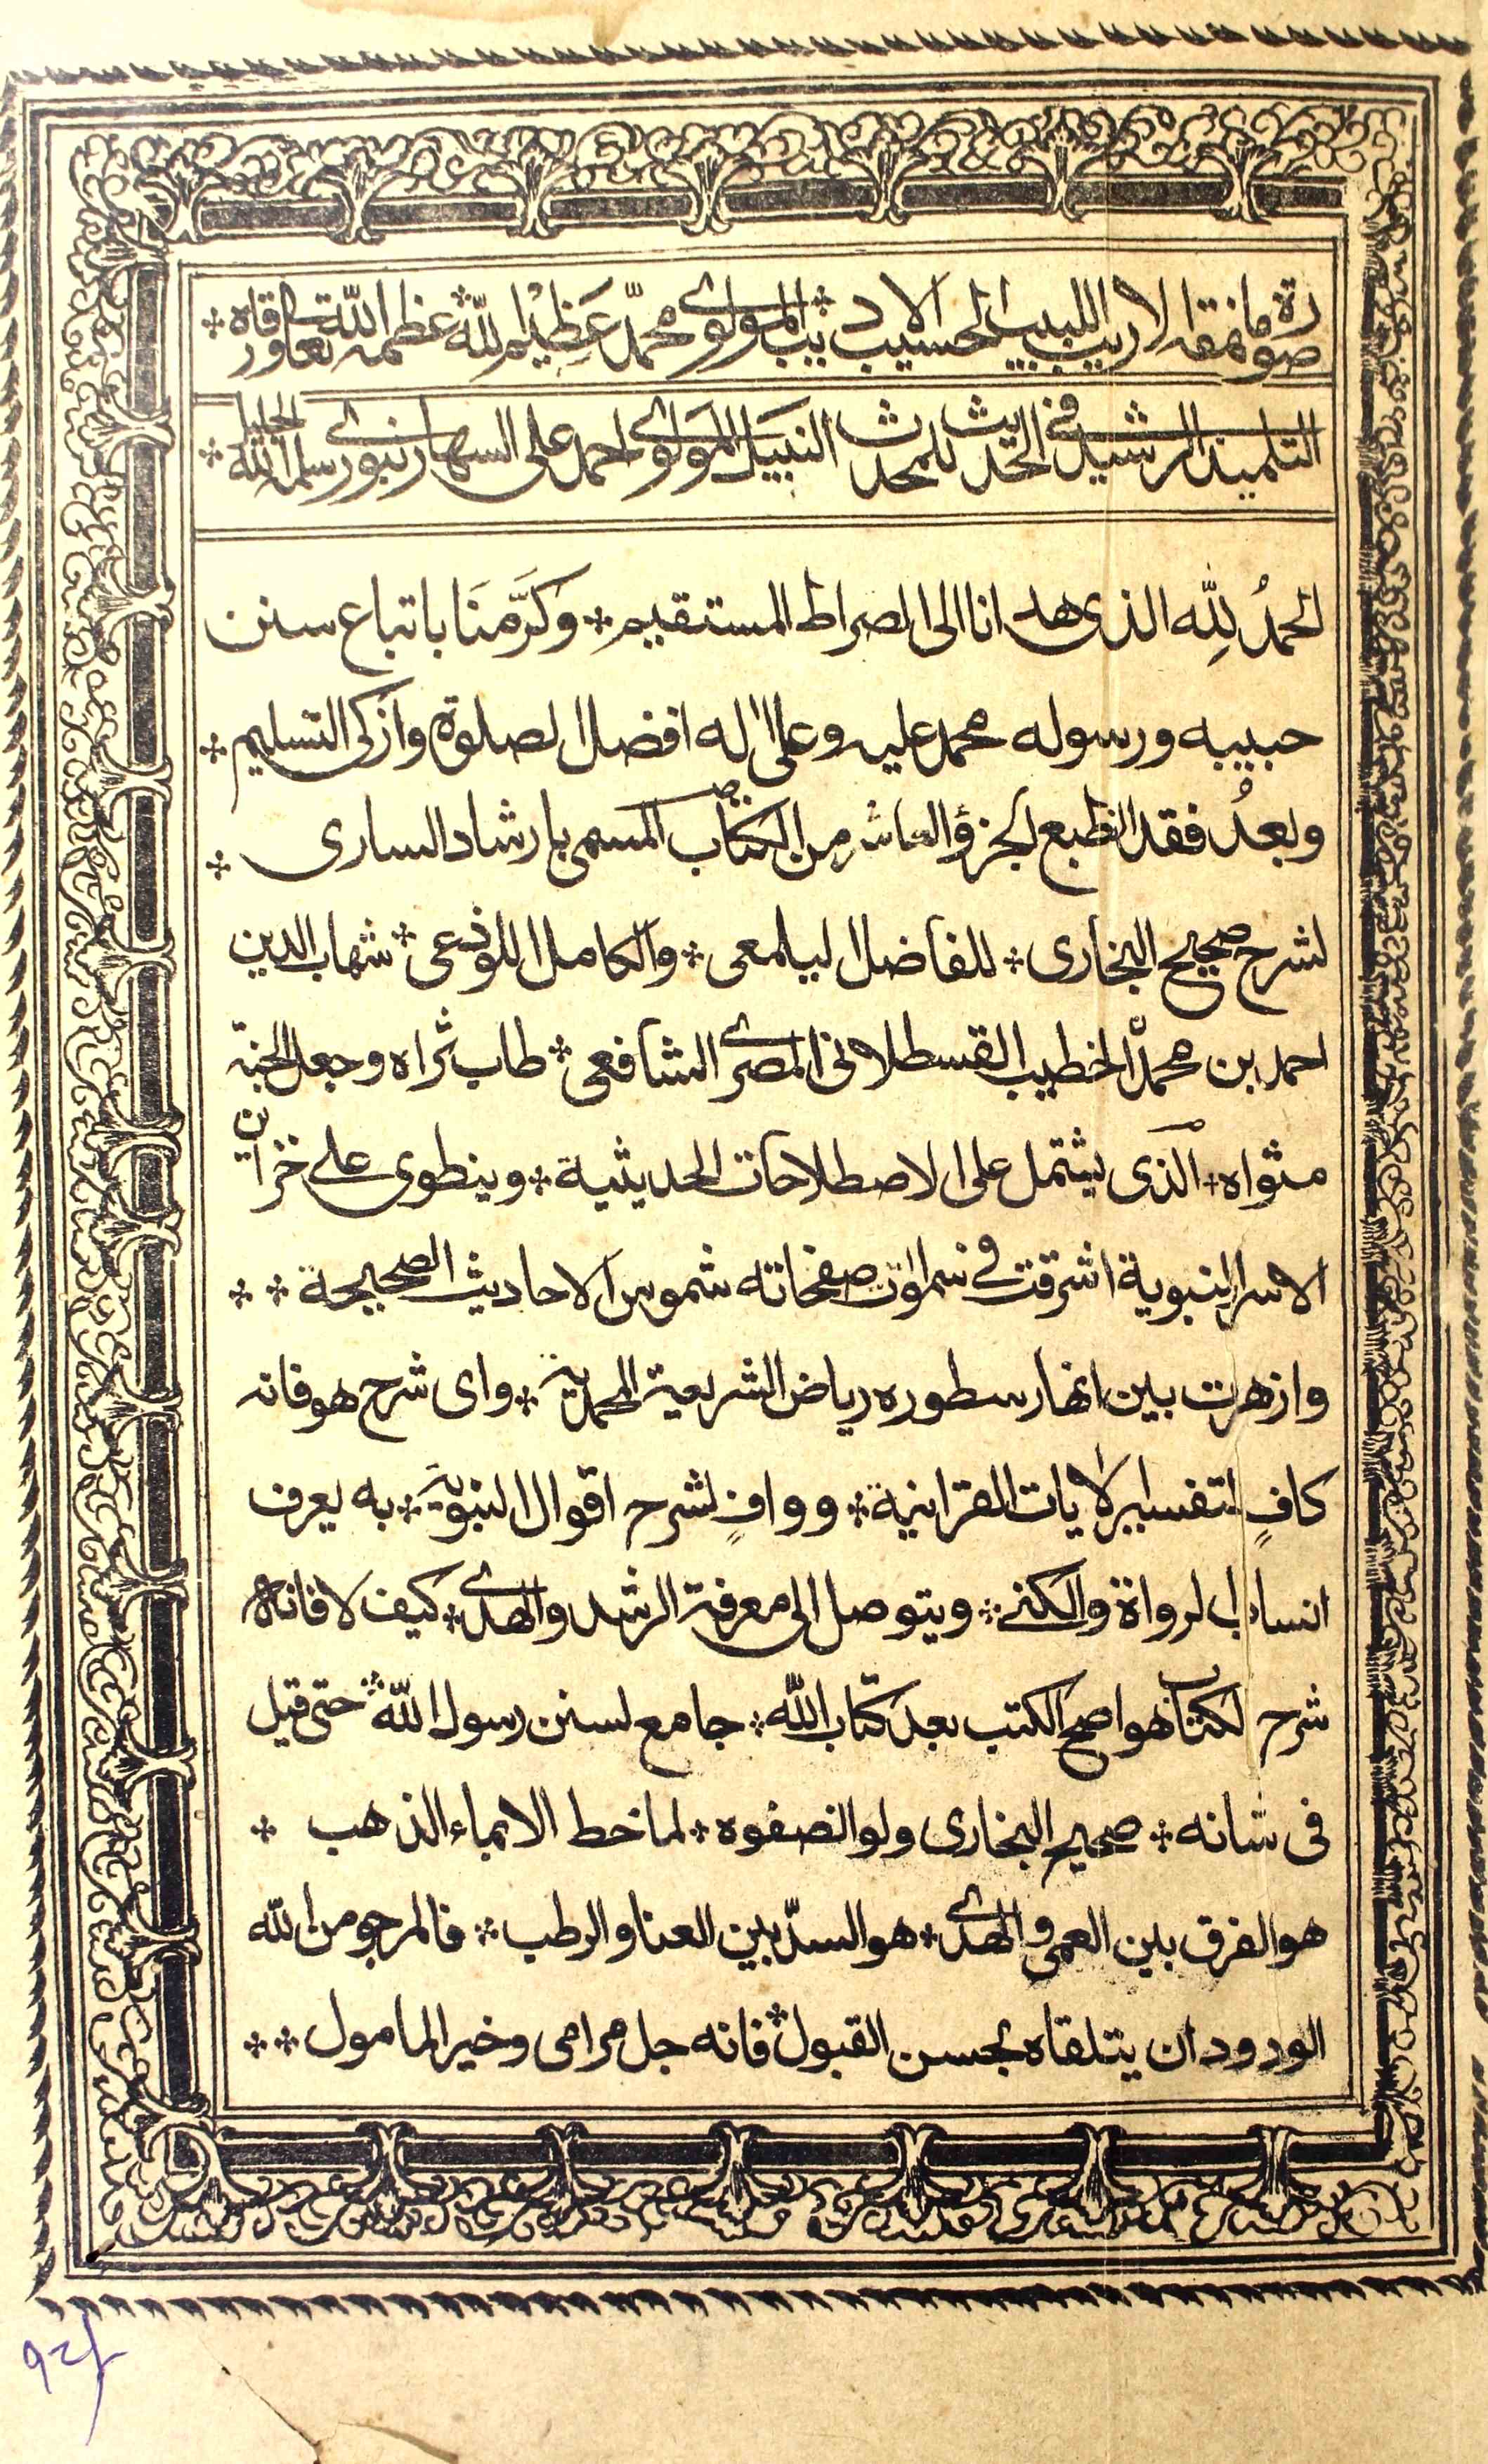 صورة ما نمقه الاريب اللبيب الحسيب الاديب * المولوى محمّد عَظِيْم للّٰه عظمه اللّٰه تعالى ورقاه *
التلميذ الرشيد فى الحديث للمحدث النبيل المولوى احمد على السهارنبورى سلمه اللّٰه الجليل *
الحمدُ لِلّٰه الذى هدانا الى الصراط المستقيم * وَكرَّمنَا باتباع سنن
حبيبه ورسوله محمد عليه وعلى اٰله افضل الصلوة وازكى التسليم *
وبعدُ فقد انطبع الجزؤ العاشر من الكتاب المسمى بارشاد السارى *
لشرح صحيح البخارى * للفاضل اليلمعى * والكامل اللوذعى * شهاب الدين
احمد بن محمدٌ الخطيب القسطلانى المصرى الشافعى * طاب ثراه وجعل الجنّة
مثواه * الذى يشتمل على الاصطلاحات الحديثية * وينطوى على خزائن
الاسرار النبوية اشرقت فى سمٰوٰت صفحاته شموس الاحاديث الصحيحة * *
وازهرت بين انهار سطوره رياض الشريعة المحمدية * واى شرح هو فانه
كافٍ لتفسير الاٰيات القرانية * ووافٍ لشرح اقوال النبوية * به يعرف
انساب الرواة والكنى * ويتوصل الى معرفة الرشد والهدى * كيف لا فانه
شرح لكتاب هو اصح الكتب بعد كتاب اللّٰه * جامع لسنن رسول اللّٰه * حتى قيل
فى شانه * صحيح البخارى ولو انصفوه * لما خط الا بماء الذهب *
هو الفرق بين العمى والهدى * هو السدّ بين العنا والرطب * فالمرجو من اللّٰه
الودود ان يتلقاه بحسن القبول * فانه جل مرامى وخير المامول * *